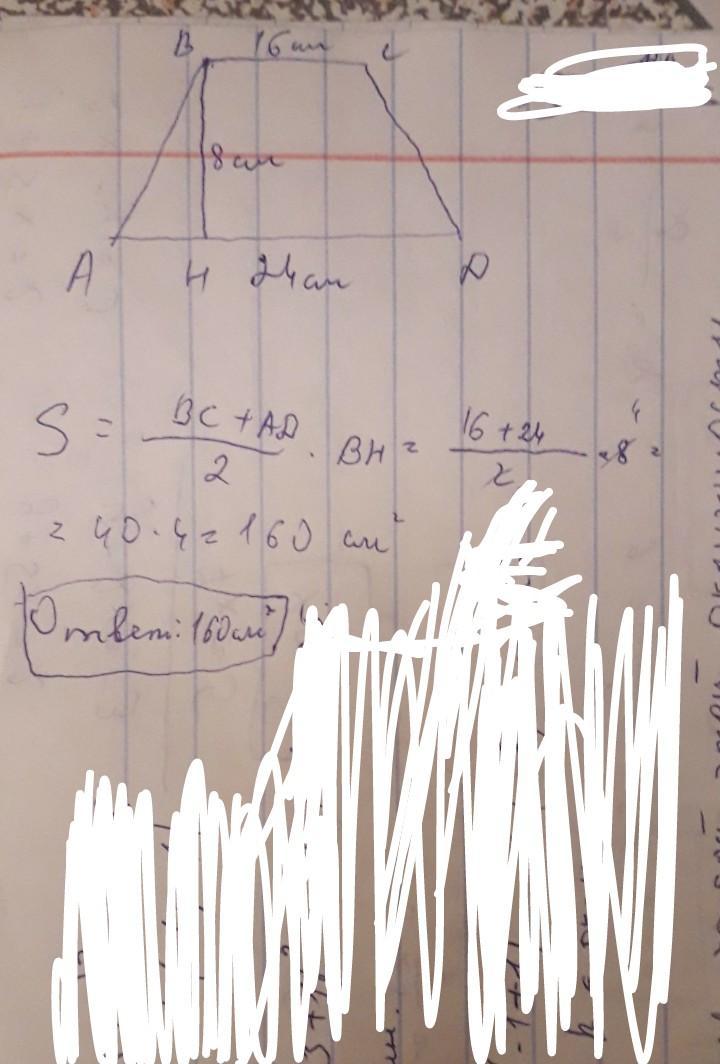 B 16 см C
8 см
A H 24 см D
S = BC + AD / 2 · BH = 16 + 24 / 2 · 8 4 =
= 40 · 4 = 160 см²
Ответ: 160 см²